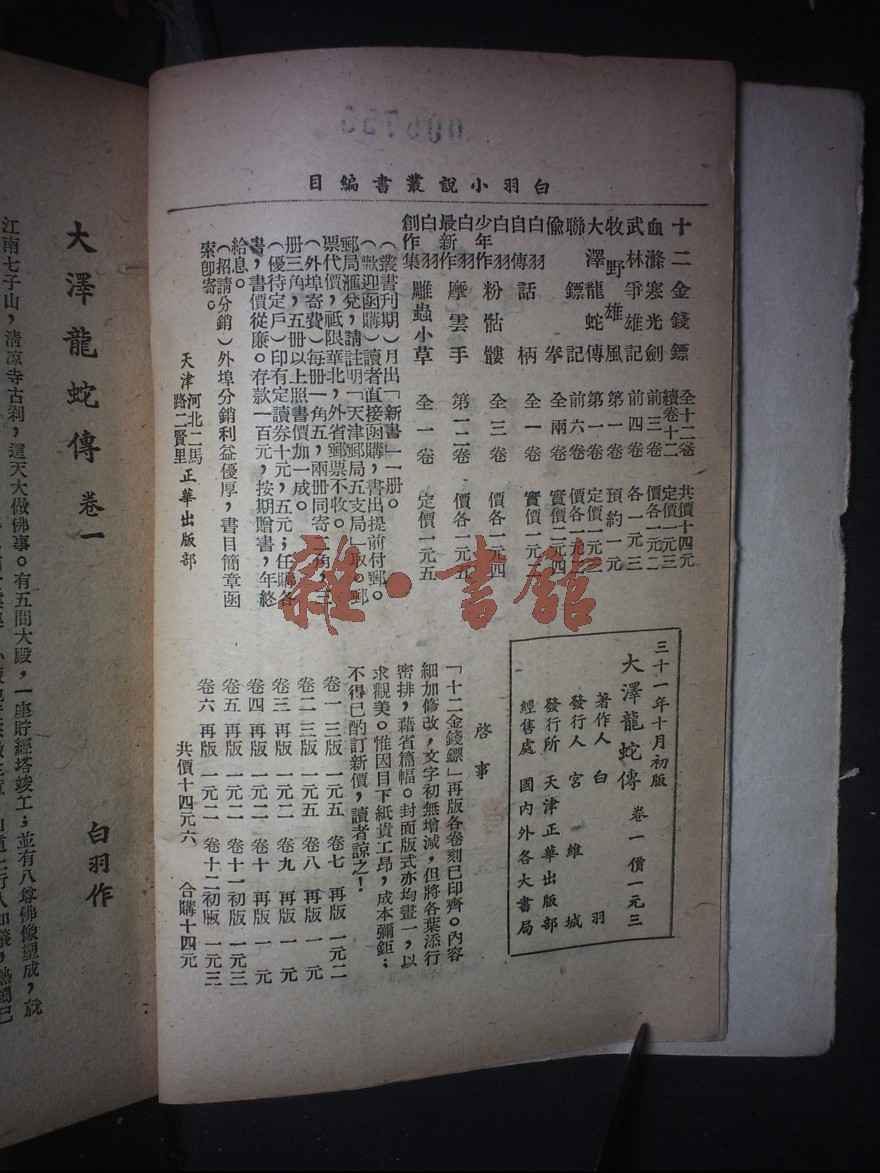 白羽小說叢書編目
十二金錢鏢 全十二卷 共價十四元
續卷十二 定價一元三
血滌寒光劍 前三卷 價各一元二
武林爭雄記 前四卷 各一元三
牧野雄風 第一卷 預約一元
大澤龍蛇傳 第一卷 定價一元三
聯鏢記 前六卷
偷拳 全兩卷 實價一元四
白羽自傳 話柄 全一卷
白羽少年作 粉骷髏 全三卷 價各一元四
白羽最新作 摩雲手 第一二卷 價各一元五
白羽創作集 雕蟲小草 全一卷 定價一元五
（叢書刊期）月出「新書」一册。
（歡迎函購）讀者直接函購，書出提前付郵。
郵局滙兌，請註明「天津郵局五支局」取。郵
票代價，祗限華北，外省郵票不收。
（外埠寄費）每册一角五，兩册同寄二角，三
册三角，五册以上照書價加一成。
（優待定戶）印有定讀券十元，五元；任購各
書，書價從廉。存款一百元，按期贈書，年終
給息。
（招請分銷）外埠分銷利益優厚，書目簡章函
索卽寄。
天津河北二馬路二賢里 正華出版部
三十一年十月初版
大澤龍蛇傳 卷一 價一元三
著作人 白羽
發行人 宮維城
發行所 天津正華出版部
經售處 國內外各大書局
啓事
「十二金錢鏢」再版各卷刻已印齊。內容
細加修改，文字初無增減，但將各葉添行
密排，藉省篇幅。封面版式亦均畫一，以
求觀美。惟因目下紙貴工昂，成本彌鉅；
不得已酌訂新價，讀者諒之！
卷一 三版 一元五 卷七 再版 一元二
卷二 三版 一元五 卷八 再版 一元
卷三 再版 一元二 卷九 再版 一元
卷四 再版 一元二 卷十 再版 一元
卷五 再版 一元二 卷十一初版 一元三
卷六 再版 一元二 卷十二初版 一元三
共價十四元六 合購十四元
大澤龍蛇傳 卷一
白羽作
江南七子山，清凉寺古刹，這天大做佛事。有五間大殿，一座貯經塔竣工；並有八尊佛像塑成，就
雜·書館